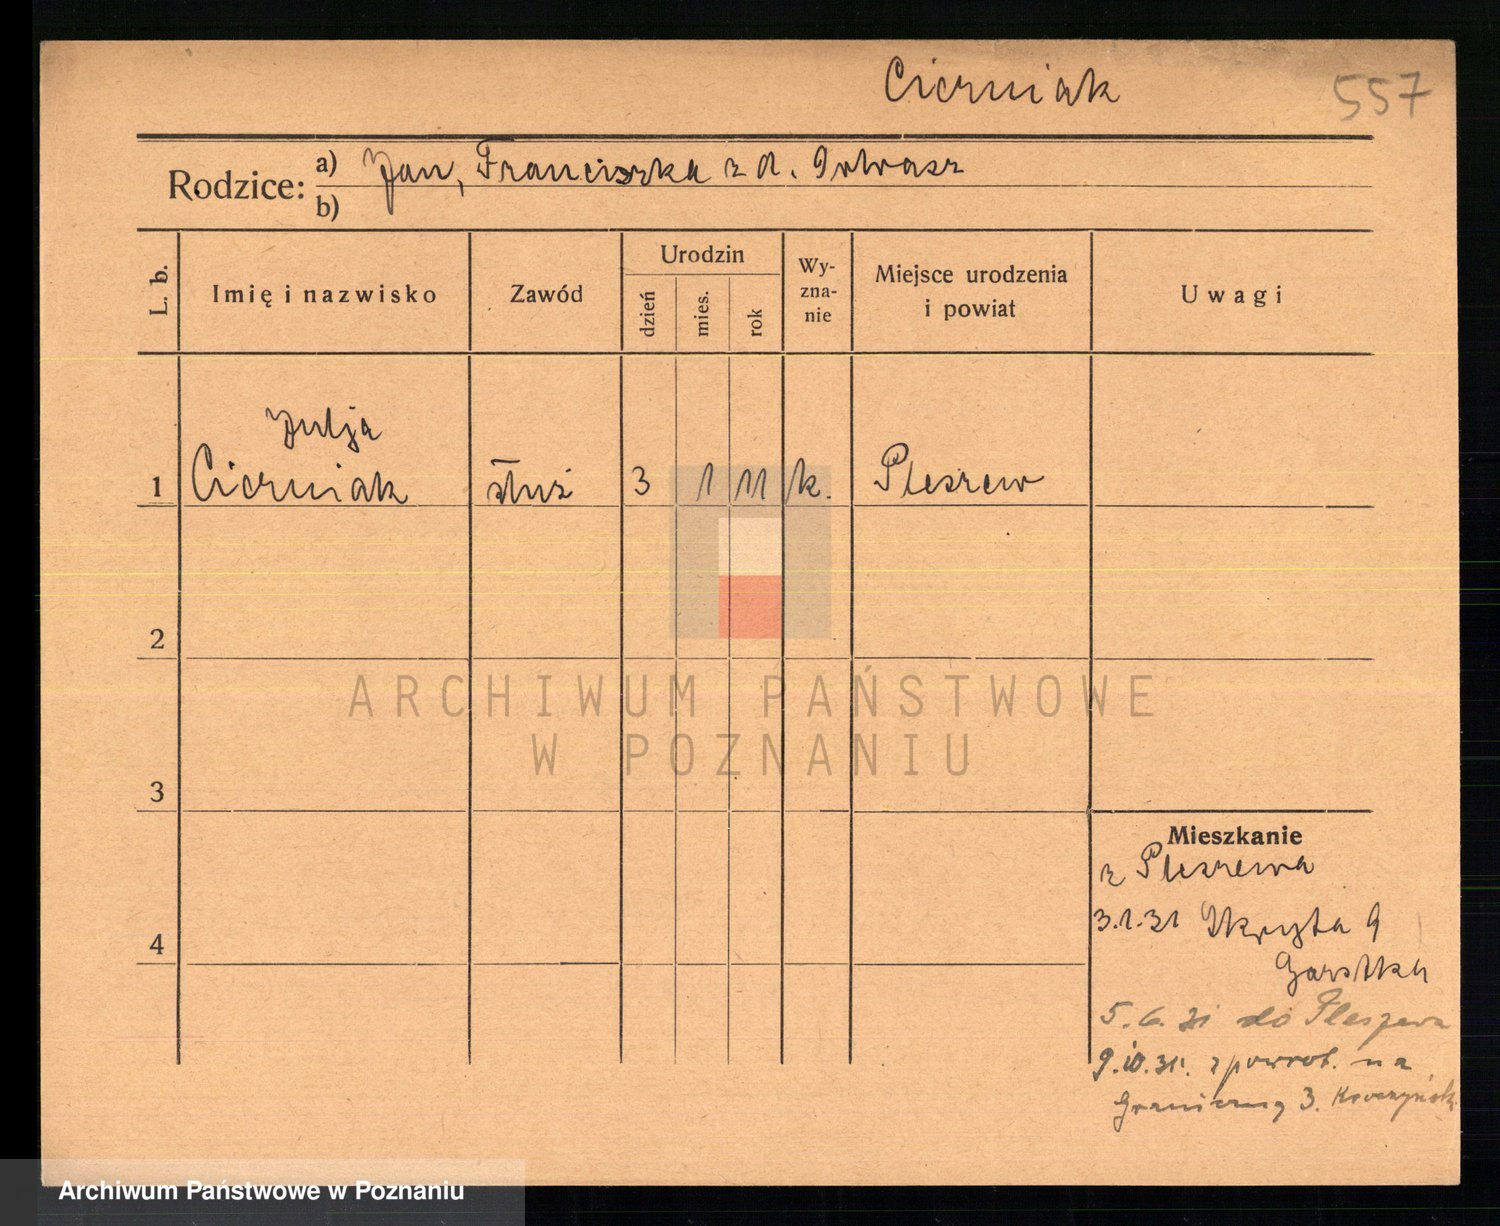 Cierniak
557
Rodzice: a) Jan, Franciszka z d.
b)
L. b.
Imię i nazwisko
Zawód
Urodzin
dzień
mies.
rok
Wy-
zna-
nie
Miejsce urodzenia
i powiat
Uwagi
Julja
1 Cierniak służ 3 1 11 k. Pleszew
2
3
4
Mieszkanie
z Pleszewa
3.1.31 9
Garstka
5.6.31 do Pleszewa
9.10.31. z powrot. na
Graniczną 3.
ARCHIWUM PAŃSTWOWE
W POZNANIU
Archiwum Państwowe w Poznaniu